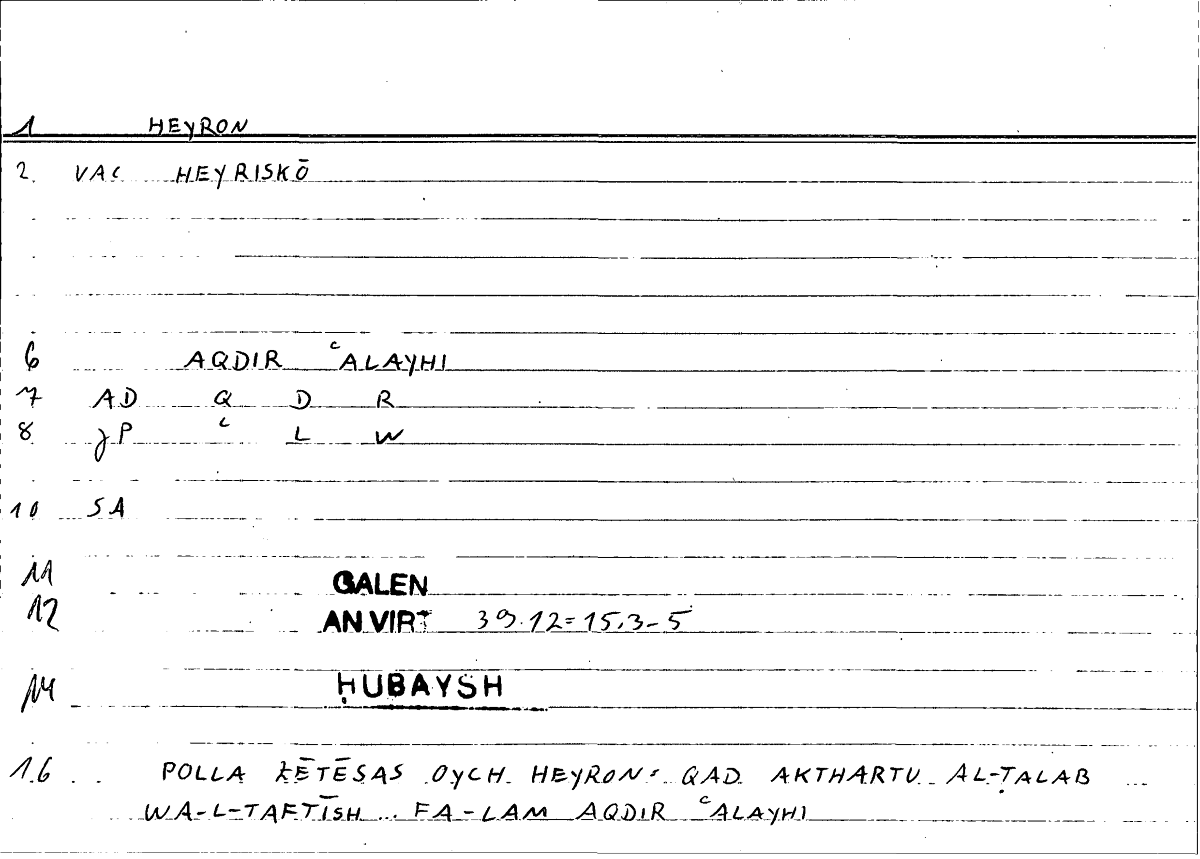 1 HEYRON
2. VAC HEYRISKŌ
6 AQDIR ʿALAYHI
7 AD Q D R
8 JP ʿ L W
10 SA
11 GALEN
12 AN VIRT 39.12=15.3-5
14 ḤUBAYSH
16 POLLA ZĒTĒSAS OYCH HEYRON: QAD AKTHARTU AL-ṬALAB ...
WA-L-TAFTĪSH ... FA-LAM AQDIR ʿALAYHI